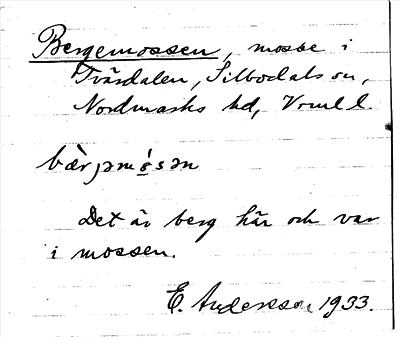 Bergemossen, mosse i
Tvärdalen, Silbodals sn,
Nordmarks hd, Vrml l.
bär̀jəmø̀sən
Det är berg här och var
i mossen.
E. Andersson 1933.